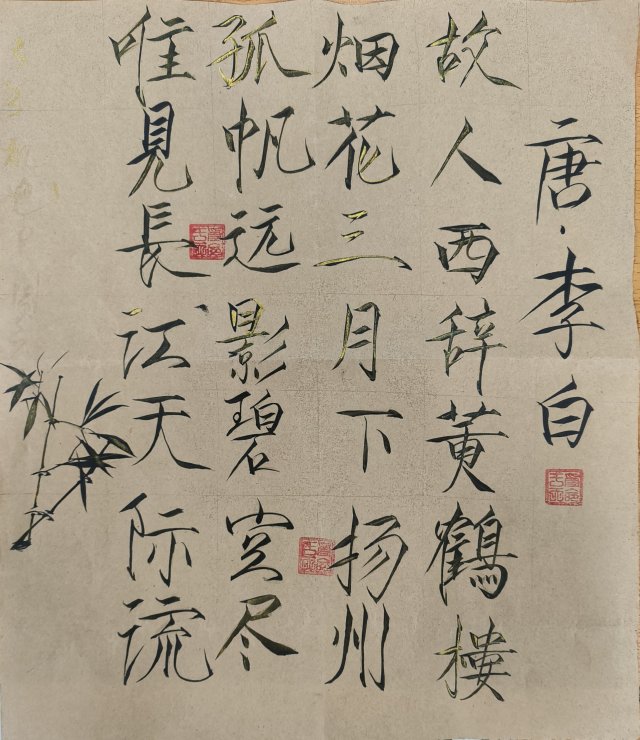 唐·李白
故人西辞黄鶴樓
烟花三月下扬州
孤帆远影碧空尽
唯見長江天际流